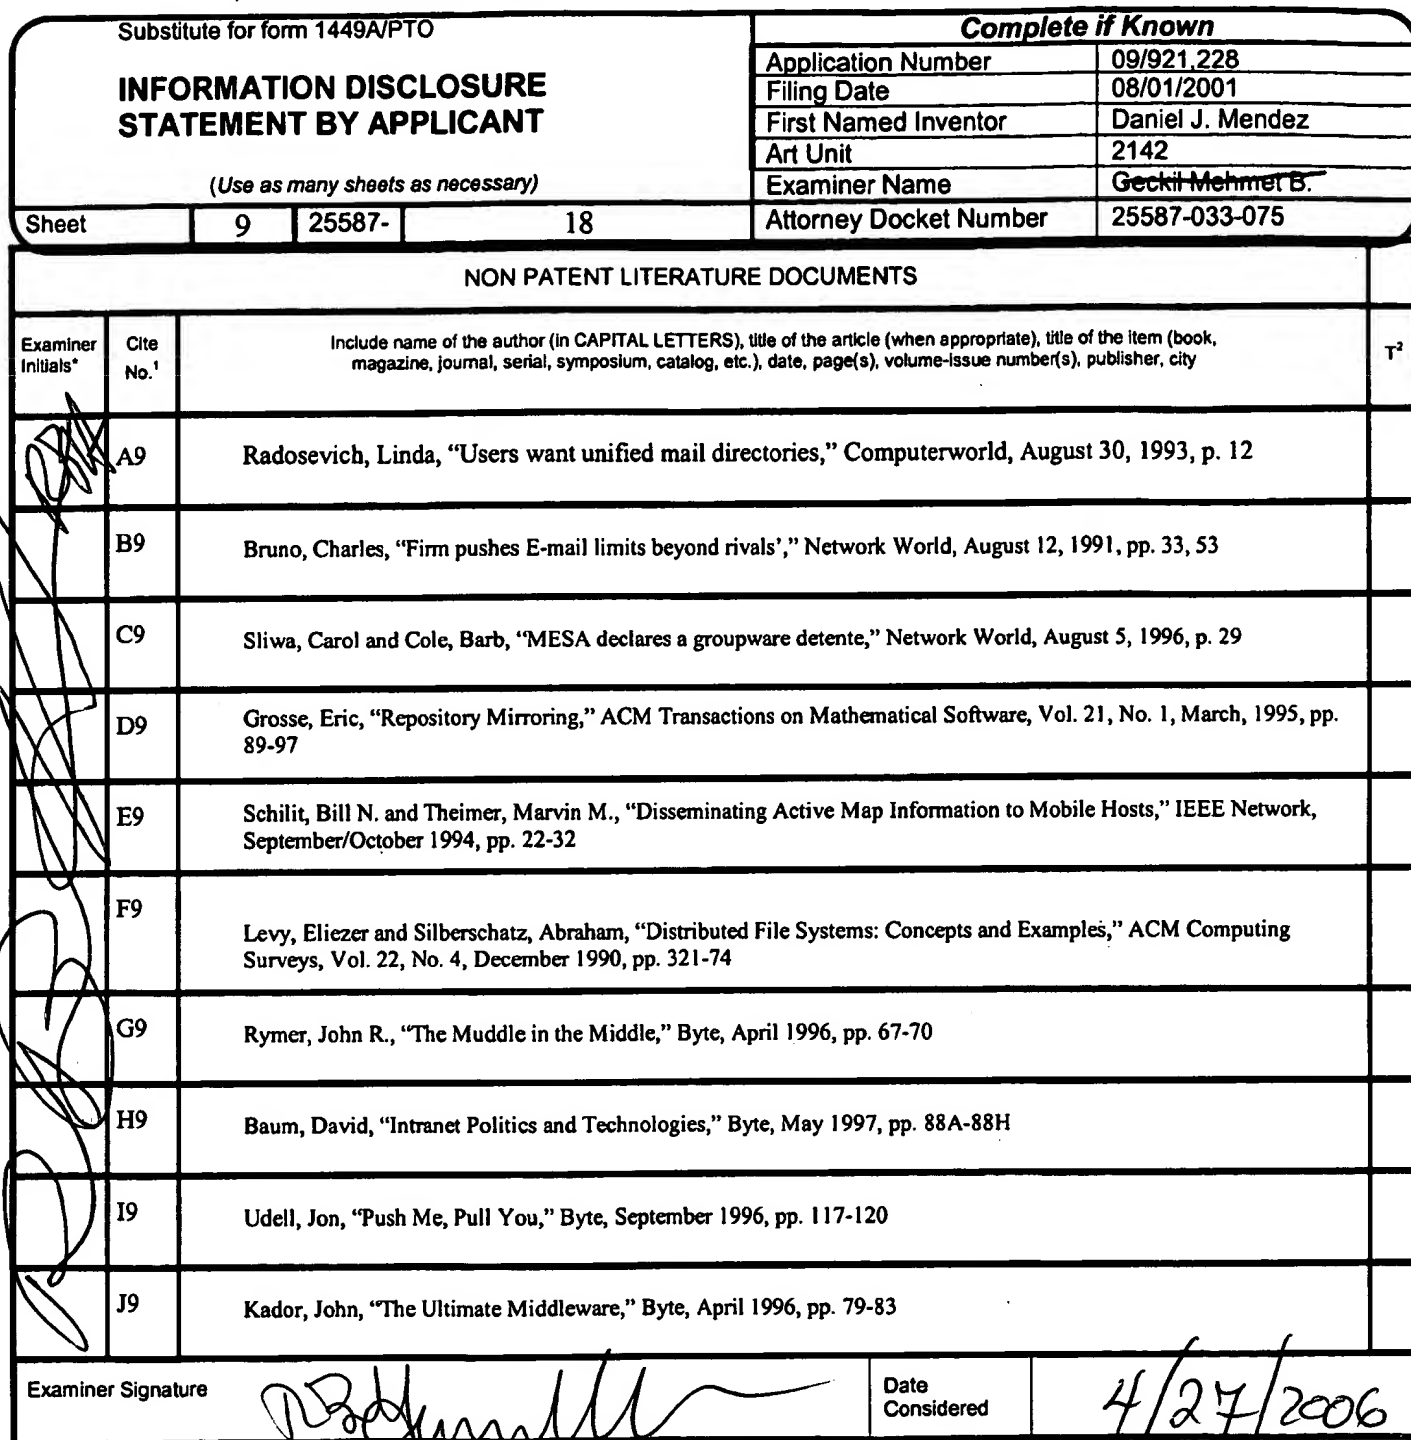 Substitute for form 1449A/PTO
INFORMATION DISCLOSURE
STATEMENT BY APPLICANT
(Use as many sheets as necessary)
Sheet 9 25587- 18
Complete if Known
Application Number 09/921,228
Filing Date 08/01/2001
First Named Inventor Daniel J. Mendez
Art Unit 2142
Examiner Name Geckil Mehmet B.
Attorney Docket Number 25587-033-075
NON PATENT LITERATURE DOCUMENTS
Examiner
Initials*
Cite
No.¹
Include name of the author (in CAPITAL LETTERS), title of the article (when appropriate), title of the item (book,
magazine, journal, serial, symposium, catalog, etc.), date, page(s), volume-issue number(s), publisher, city
T²
A9 Radosevich, Linda, “Users want unified mail directories,” Computerworld, August 30, 1993, p. 12
B9 Bruno, Charles, “Firm pushes E-mail limits beyond rivals’,” Network World, August 12, 1991, pp. 33, 53
C9 Sliwa, Carol and Cole, Barb, “MESA declares a groupware detente,” Network World, August 5, 1996, p. 29
D9 Grosse, Eric, “Repository Mirroring,” ACM Transactions on Mathematical Software, Vol. 21, No. 1, March, 1995, pp.
89-97
E9 Schilit, Bill N. and Theimer, Marvin M., “Disseminating Active Map Information to Mobile Hosts,” IEEE Network,
September/October 1994, pp. 22-32
F9 Levy, Eliezer and Silberschatz, Abraham, “Distributed File Systems: Concepts and Examples,” ACM Computing
Surveys, Vol. 22, No. 4, December 1990, pp. 321-74
G9 Rymer, John R., “The Muddle in the Middle,” Byte, April 1996, pp. 67-70
H9 Baum, David, “Intranet Politics and Technologies,” Byte, May 1997, pp. 88A-88H
I9 Udell, Jon, “Push Me, Pull You,” Byte, September 1996, pp. 117-120
J9 Kador, John, “The Ultimate Middleware,” Byte, April 1996, pp. 79-83
Examiner Signature
Date
Considered
4/27/2006